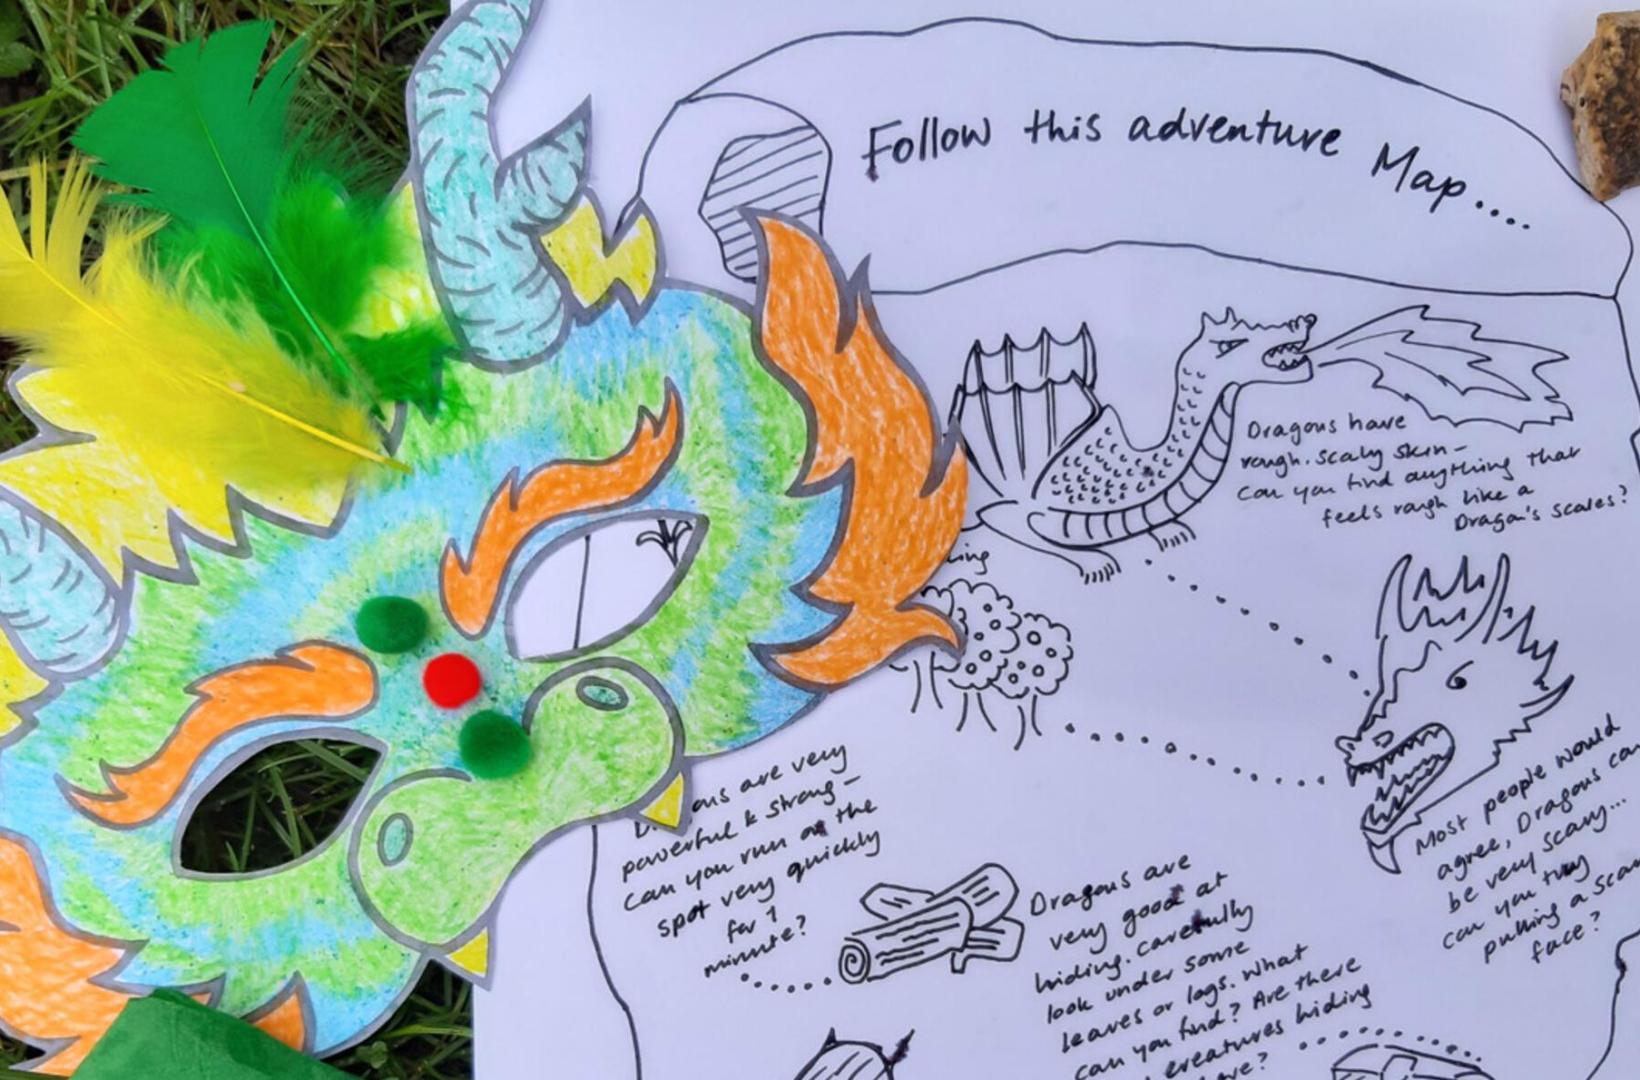 Follow this adventure Map.....
Dragons have
rough, scaly skin-
can you find anything that
feels rough like a
Dragon's scales?
Most people would
agree, Dragons can
be very scary...
can you try
pulling a scary
face?
are very
powerful & strong-
can you run on the
spot very quickly
for 1
minute?
Dragons are
very good at
hiding. carefully
look under some
leaves or logs. What
can you find? Are there
creatures hiding